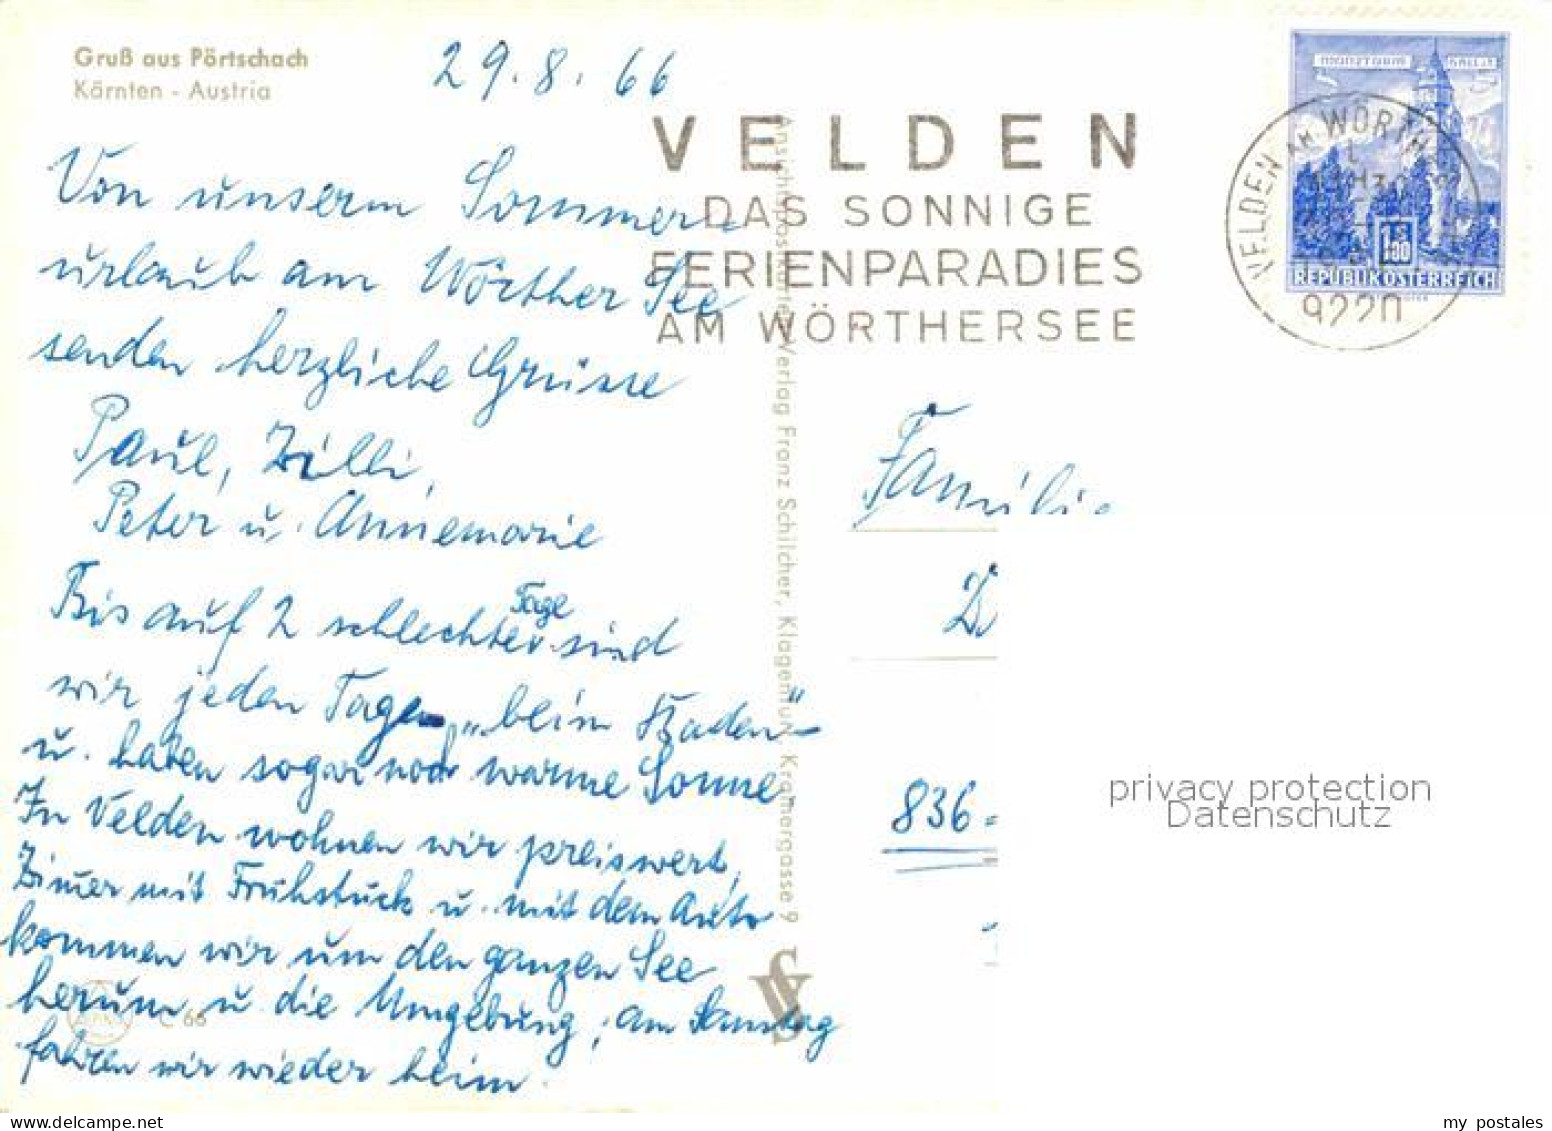 Gruß aus Pörtschach
Kärnten - Austria
29.8.66
Von unserm Sommer-
urlaub am Wörther See
senden herzliche Grüsse
Paul, Zilli,
Peter u. Annemarie
Bis auf 2 schlechter Tage sind
wir jeden Tage „beim Baden"
u. haben sogar noch warme Sonne.
In Velden wohnen wir preiswert,
Zimer mit Frühstück u. mit dem Auto
kommen wir um den ganzen See
herum u. die Umgebung, am Samstag
fahren wir wieder heim.
C 66
Ansichtspostkarten-Verlag Franz Schilcher, Klagenfurt, Kramergasse 9
VELDEN
DAS SONNIGE
FERIENPARADIES
AM WÖRTHERSEE
MÜNZTURM HALL i.T.
VELDEN AM WÖRTHERSEE
9220
1S 80
REPUBLIK ÖSTERREICH
Famili
836
privacy protection
Datenschutz
my postales